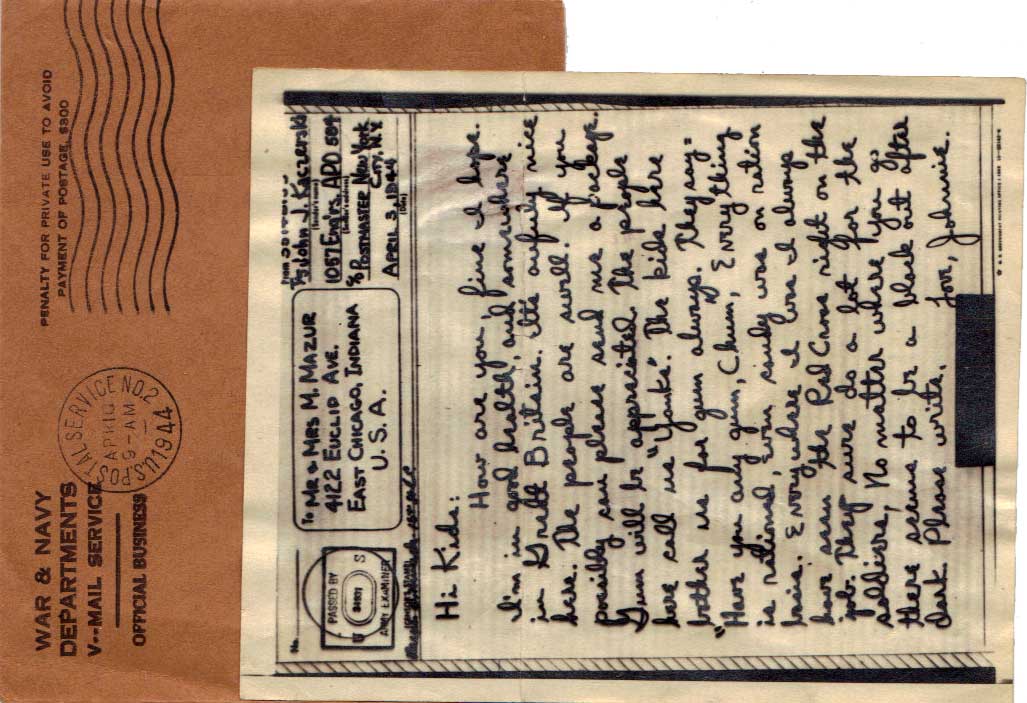 WAR & NAVY
DEPARTMENTS
V--MAIL SERVICE
OFFICIAL BUSINESS
U.S. POSTAL SERVICE NO. 2
APR 10
9-AM
1944
PENALTY FOR PRIVATE USE TO AVOID
PAYMENT OF POSTAGE, $300
No.
PASSED BY
U S
ARMY EXAMINER
To MR & MRS M. MAZUR
4122 EUCLID AVE.
EAST CHICAGO, INDIANA
U. S. A.
From
John J. Kaczerski
(Sender's name)
108TH Engrs. APO 584
(Sender's address)
% Postmaster New York
City, N.Y.
APRIL 3, 1944
(Date)
Hi Kids:
How are you, fine I hope.
I'm in good health, and somewhere
in Great Britain. It's awfuly nice
here. The people are swell. If you
possibly can please send me a package.
Gum will be appreciated. The people
here call us "Yanks". The kids here
bother us for gum always. They say=
"Have you any gum, Chum,". Everything
is rationed, even candy was on ration
basis. Everywhere I was I always
have seen the Red Cross right on the
job. They sure do a lot for the
soldiers. No matter where you go
there seems to be a black out after
dark. Please write.
Love, Johnnie.